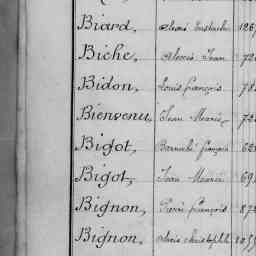 Biard, Alexis Eustache 126
Biche, Alexis Jean 72
Bidon, Louis François 78
Bienvenu, Jean Marie 72
Bigot, François 62
Bigot, Jean Marie 69
Bignon, Pierre François 87
Bignon, Christophe 105